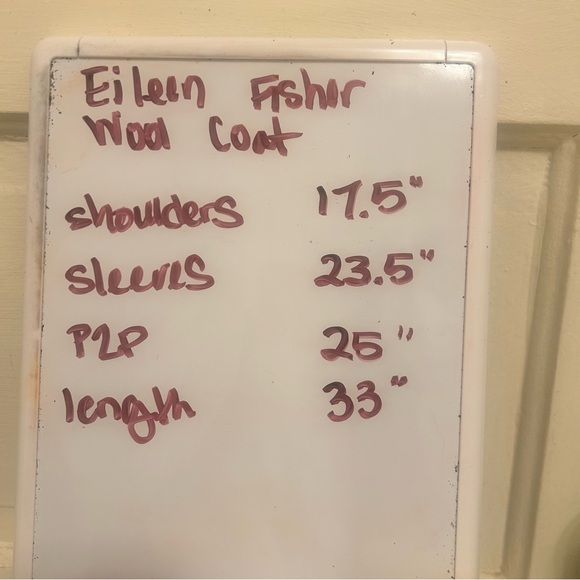 Eileen Fisher
Wool Coat
shoulders 17.5"
sleeves 23.5"
P2P 25"
length 33"